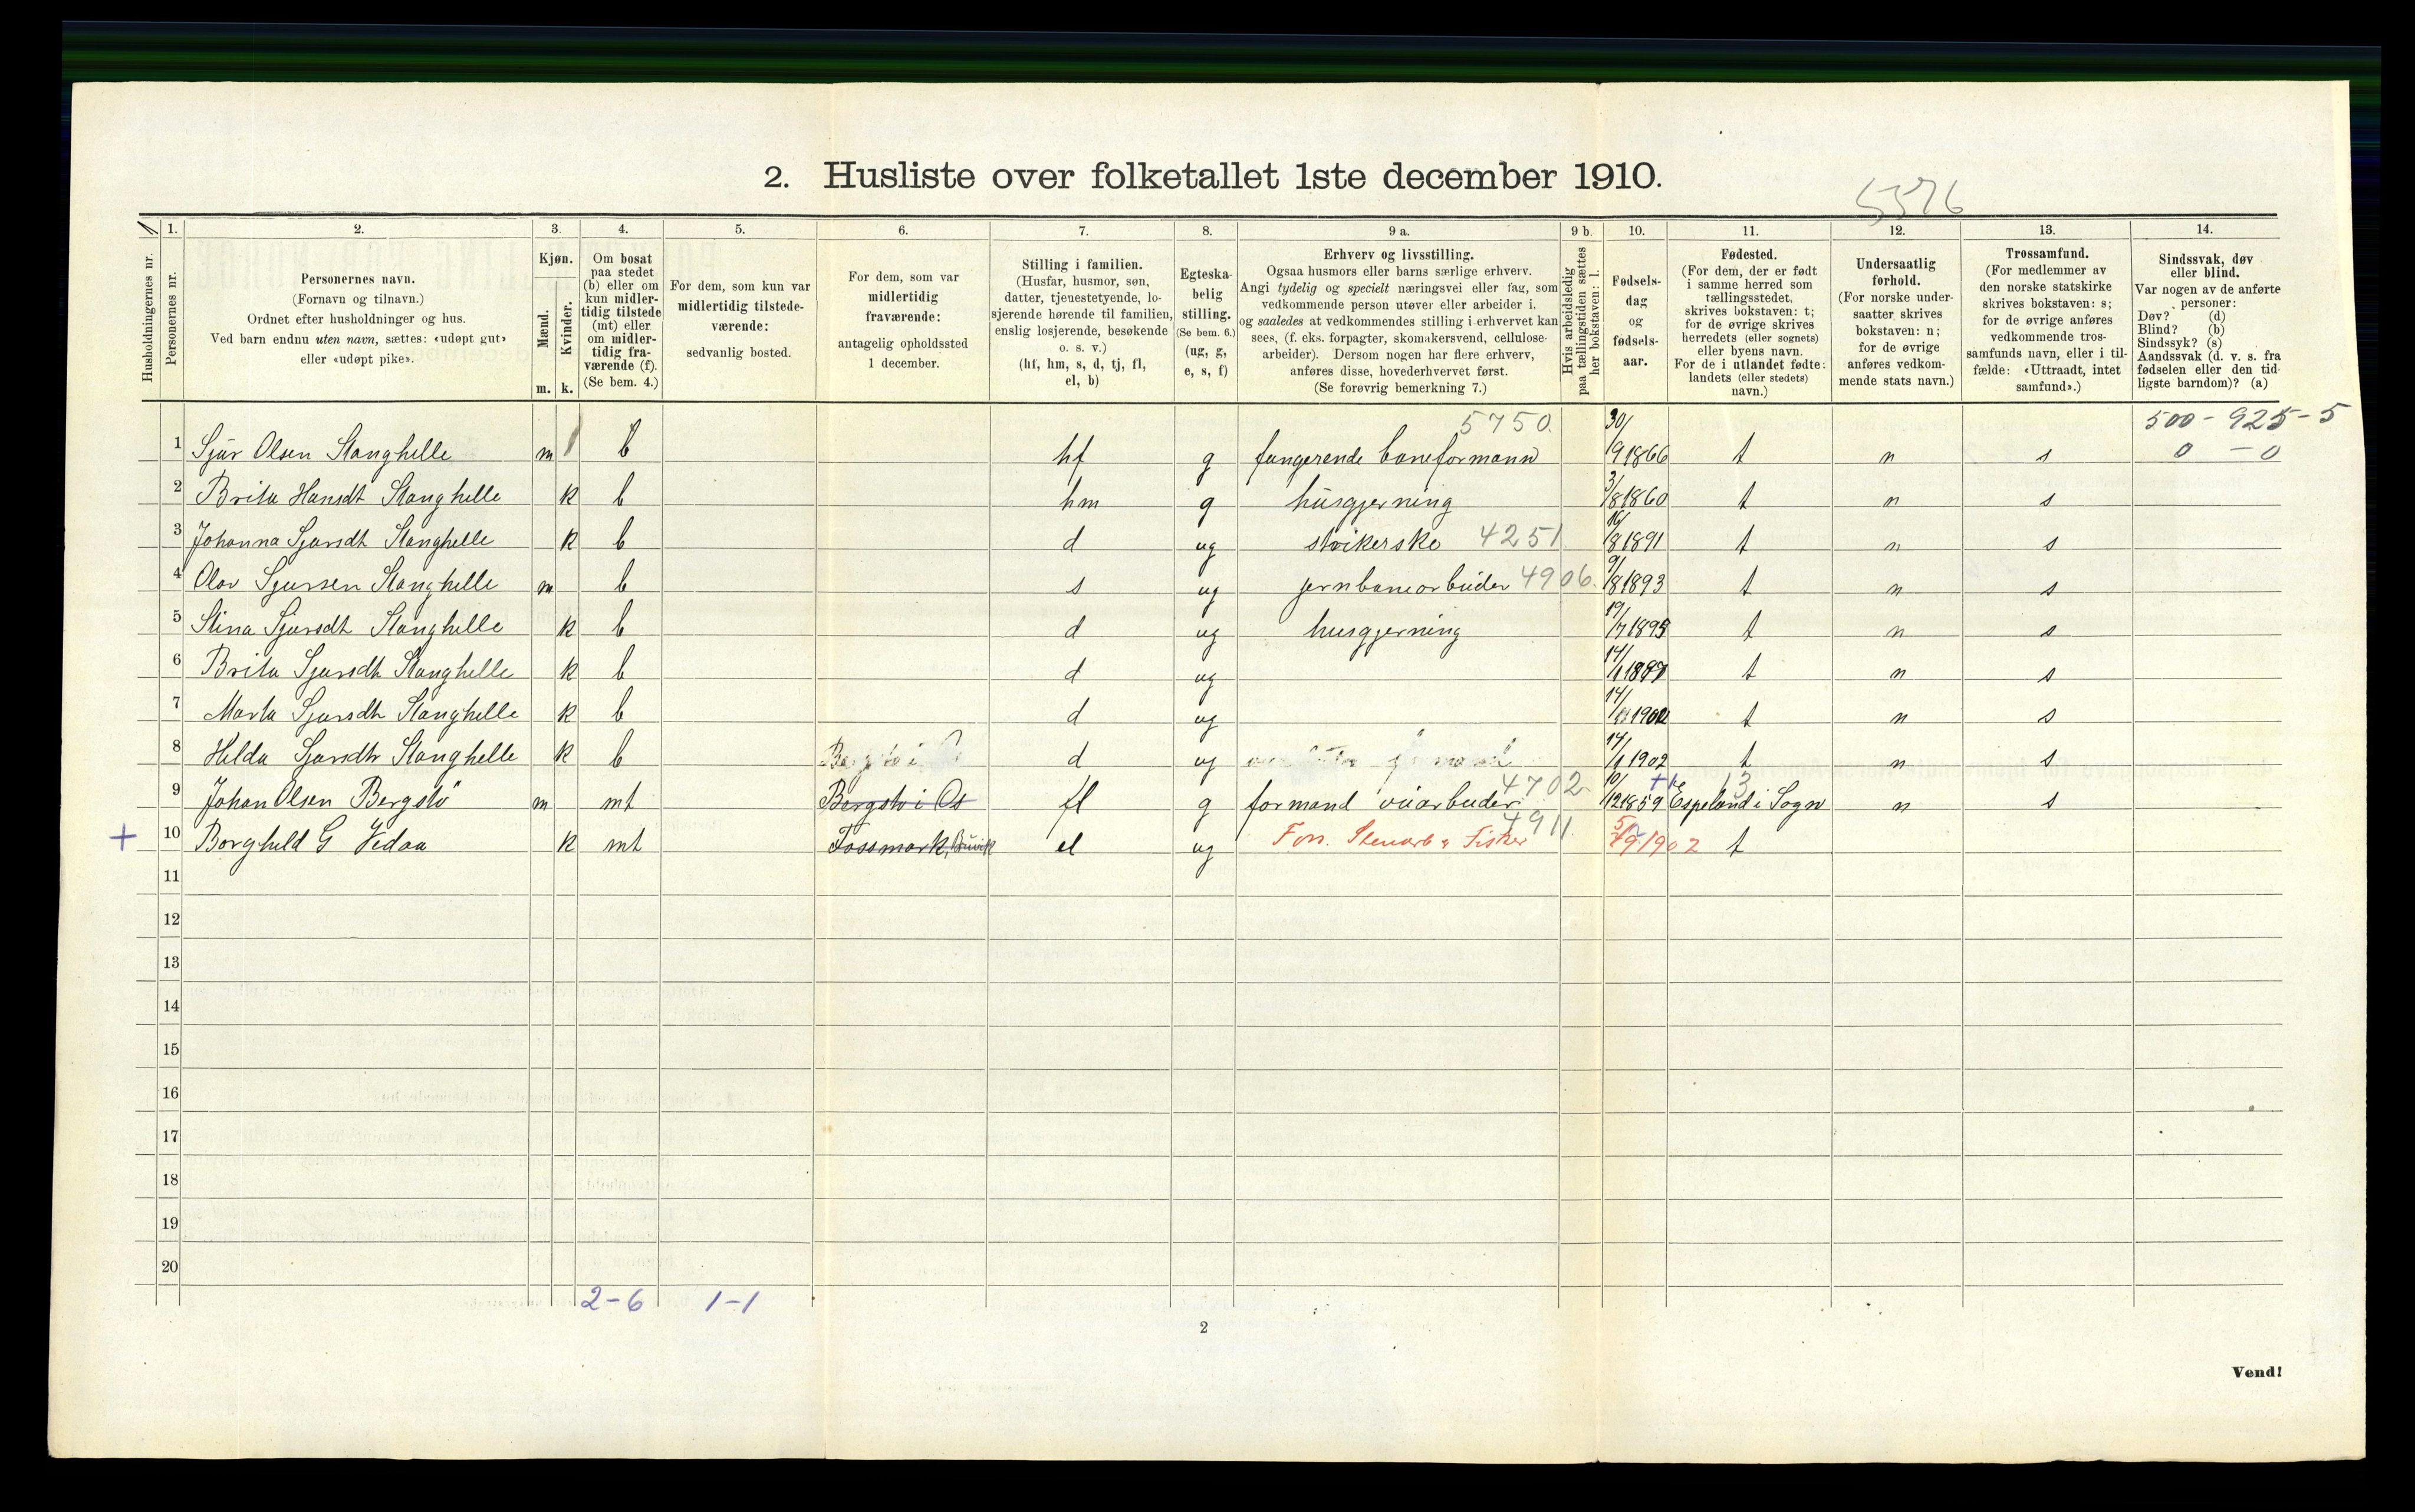 2. Husliste over folketallet 1ste december 1910.
5376
1. 2. 3. 4. 5. 6. 7. 8. 9 a. 9 b. 10. 11. 12. 13. 14.
Husholdningernes nr.
Personernes nr.
Personernes navn.
(Fornavn og tilnavn.)
Ordnet efter husholdninger og hus.
Ved barn endnu uten navn, sættes: «udøpt gut»
eller «udøpt pike».
Kjøn.
Mænd.
Kvinder.
m. k.
Om bosat
paa stedet
(b) eller om
kun midler-
tidig tilstede
(mt) eller
om midler-
tidig fra-
værende (f).
(Se bem. 4.)
For dem, som kun var
midlertidig tilstede-
værende:
sedvanlig bosted.
For dem, som var
midlertidig
fraværende:
antagelig opholdssted
1 december.
Stilling i familien.
(Husfar, husmor, søn,
datter, tjenestetyende, lo-
sjerende hørende til familien,
enslig losjerende, besøkende
o. s. v.)
(hf, hm, s, d, tj, fl,
el, b)
Egteska-
belig
stilling.
(Se bem. 6.)
(ug, g,
e, s, f)
Erhverv og livsstilling.
Ogsaa husmors eller barns særlige erhverv.
Angi tydelig og specielt næringsvei eller fag, som
vedkommende person utøver eller arbeider i,
og saaledes at vedkommendes stilling i erhvervet kan
sees, (f. eks. forpagter, skomakersvend, cellulose-
arbeider). Dersom nogen har flere erhverv,
anføres disse, hovederhvervet først.
(Se forøvrig bemerkning 7.)
Hvis arbeidsledig
paa tællingstiden sættes
her bokstaven: l.
Fødsels-
dag
og
fødsels-
aar.
Fødested.
(For dem, der er født
i samme herred som
tællingsstedet,
skrives bokstaven: t;
for de øvrige skrives
herredets (eller sognets)
eller byens navn.
For de i utlandet fødte:
landets (eller stedets)
navn.)
Undersaatlig
forhold.
(For norske under-
saatter skrives
bokstaven: n;
for de øvrige
anføres vedkom-
mende stats navn.)
Trossamfund.
(For medlemmer av
den norske statskirke
skrives bokstaven: s;
for de øvrige anføres
vedkommende tros-
samfunds navn, eller i til-
fælde: «Uttraadt, intet
samfund».)
Sindssvak, døv
eller blind.
Var nogen av de anførte
personer:
Døv? (d)
Blind? (b)
Sindssyk? (s)
Aandssvak (d. v. s. fra
fødselen eller den tid-
ligste barndom)? (a)
5750. 500 - 925 - 5
1 Sjur Olsen Stanghelle m b hf g fungerende baneformann 30/9 1866 t n s 0 - 0
2 Brita Hansdt Stanghelle k b hm g husgjerning 3/8 1860 t n s
3 Johanna Sjursdt Stanghelle k b d ug strikerske 4251 16/8 1891 t n s
4 Olav Sjursen Stanghelle m b s ug jernbanearbeider 4906. 9/8 1893 t n s
5 Stina Sjursdt Stanghelle k b d ug husgjerning 19/7 1895 t n s
6 Brita Sjursdt Stanghelle k b d ug t n s
7 Marta Sjursdt Stanghelle k b d ug t n s
8 Helda Sjursdt Stanghelle k b d ug 14/1 1902 t n s
9 Johan Olsen Bergstø m mt Bergstø i Os fl g formand viiarbeider 4702 10/12 1859 Espeland i Sogn n s
+ 10 Borghild G Vedaa k mt Fossmark, Bruvik el ug 4911. Fors. Stenarb & Fisker 1902 t
11
12
13
14
15
16
17
18
19
20
2-6 1-1
2
Vend!